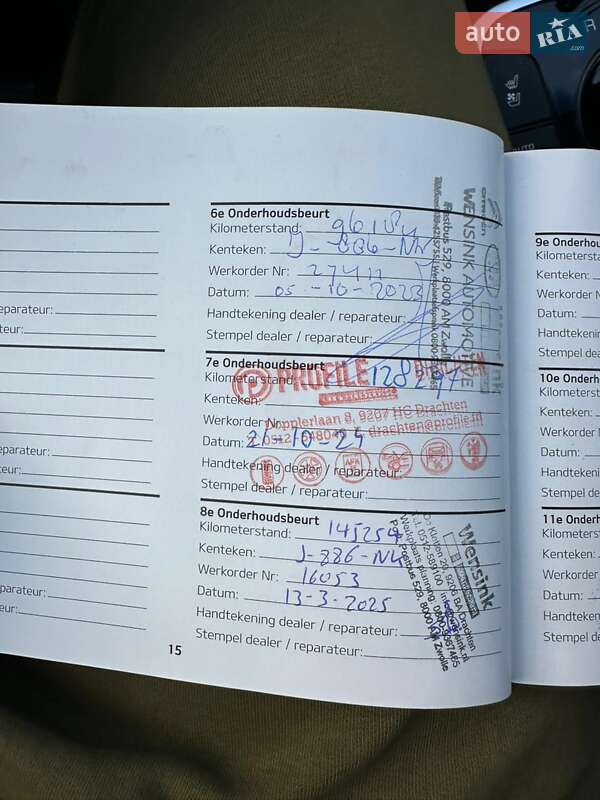 auto RIA .com
AUTO
6e Onderhoudsbeurt
Kilometerstand:
Kenteken: J-886-NW
Werkorder Nr:
Datum: 05-10-2023
Handtekening dealer / reparateur:
Stempel dealer / reparateur:
CITROËN
WENSINK AUTOMOTIVE
Postbus 529, 8000 AM Zwolle
7e Onderhoudsbeurt
Kilometerstand: 128297
Kenteken:
Datum: 21-10-24
Handtekening dealer / reparateur:
Stempel dealer / reparateur:
PROFILE
Nopplerlaan 8, 9207 HC Drachten
drachten@profile.nl
8e Onderhoudsbeurt
Kilometerstand: 145254
Kenteken: J-886-NW
Werkorder Nr: 16053
Datum: 13-3-2025
Handtekening dealer / reparateur:
Stempel dealer / reparateur:
Wensink
De Kletten 26, 9206 BA Drachten
Postbus 529, 8000 AM Zwolle
15
reparateur:
eur:
reparateur:
eur:
reparateur:
eur:
9e Onderhou
Kilometersta
Kenteken:
Werkorder N
Datum:
Handtekenin
Stempel dea
10e Onderho
Kilometerst
Kenteken:
Werkorder
Datum:
Handtekeni
Stempel de
11e Onderh
Kilometerst
Kenteken:
Werkorder
Datum:
Handteken
Stempel de